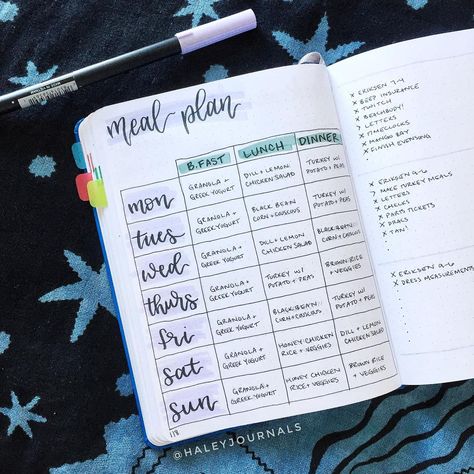 meal plan
B.FAST LUNCH DINNER
mon
GRANOLA +
GREEK YOGURT
DILL + LEMON
CHICKEN SALAD
TURKEY W/
POTATO + PEAS
tues
GRANOLA +
GREEK YOGURT
BLACK BEAN
CORN + COUSCOUS
TURKEY W/
POTATO + PEAS
wed
GRANOLA +
GREEK YOGURT
DILL + LEMON
CHICKEN SALAD
BLACK BEAN
CORN + COUSCOUS
thurs
GRANOLA +
GREEK YOGURT
TURKEY W/
POTATO + PEAS
BROWN RICE
+ VEGGIES
fri
GRANOLA +
GREEK YOGURT
BLACK BEAN
CORN + COUSCOUS
TURKEY W/
POTATO + PEAS
sat
GRANOLA +
GREEK YOGURT
HONEY CHICKEN
RICE + VEGGIES
DILL + LEMON
CHICKEN SALAD
sun
GRANOLA +
GREEK YOGURT
HONEY CHICKEN
RICE + VEGGIES
BROWN RICE
+ VEGGIES
118
X ERIKSEN
X BEEP INSURANCE
X TWITCH
X BEACHBODY!
> LETTERS
X TIMECLOCKS
X MANGO BAY
X FINISH EVENSONG
X ERIKSEN 9-6
X MAKE TURKEY MEALS
X LETTERS
X CHECKS
X PARIS TICKETS
X DRACS
X TAN!
X ERIKSEN 9-6
X DRESS MEASUREMENTS
@HALEYJOURNALS